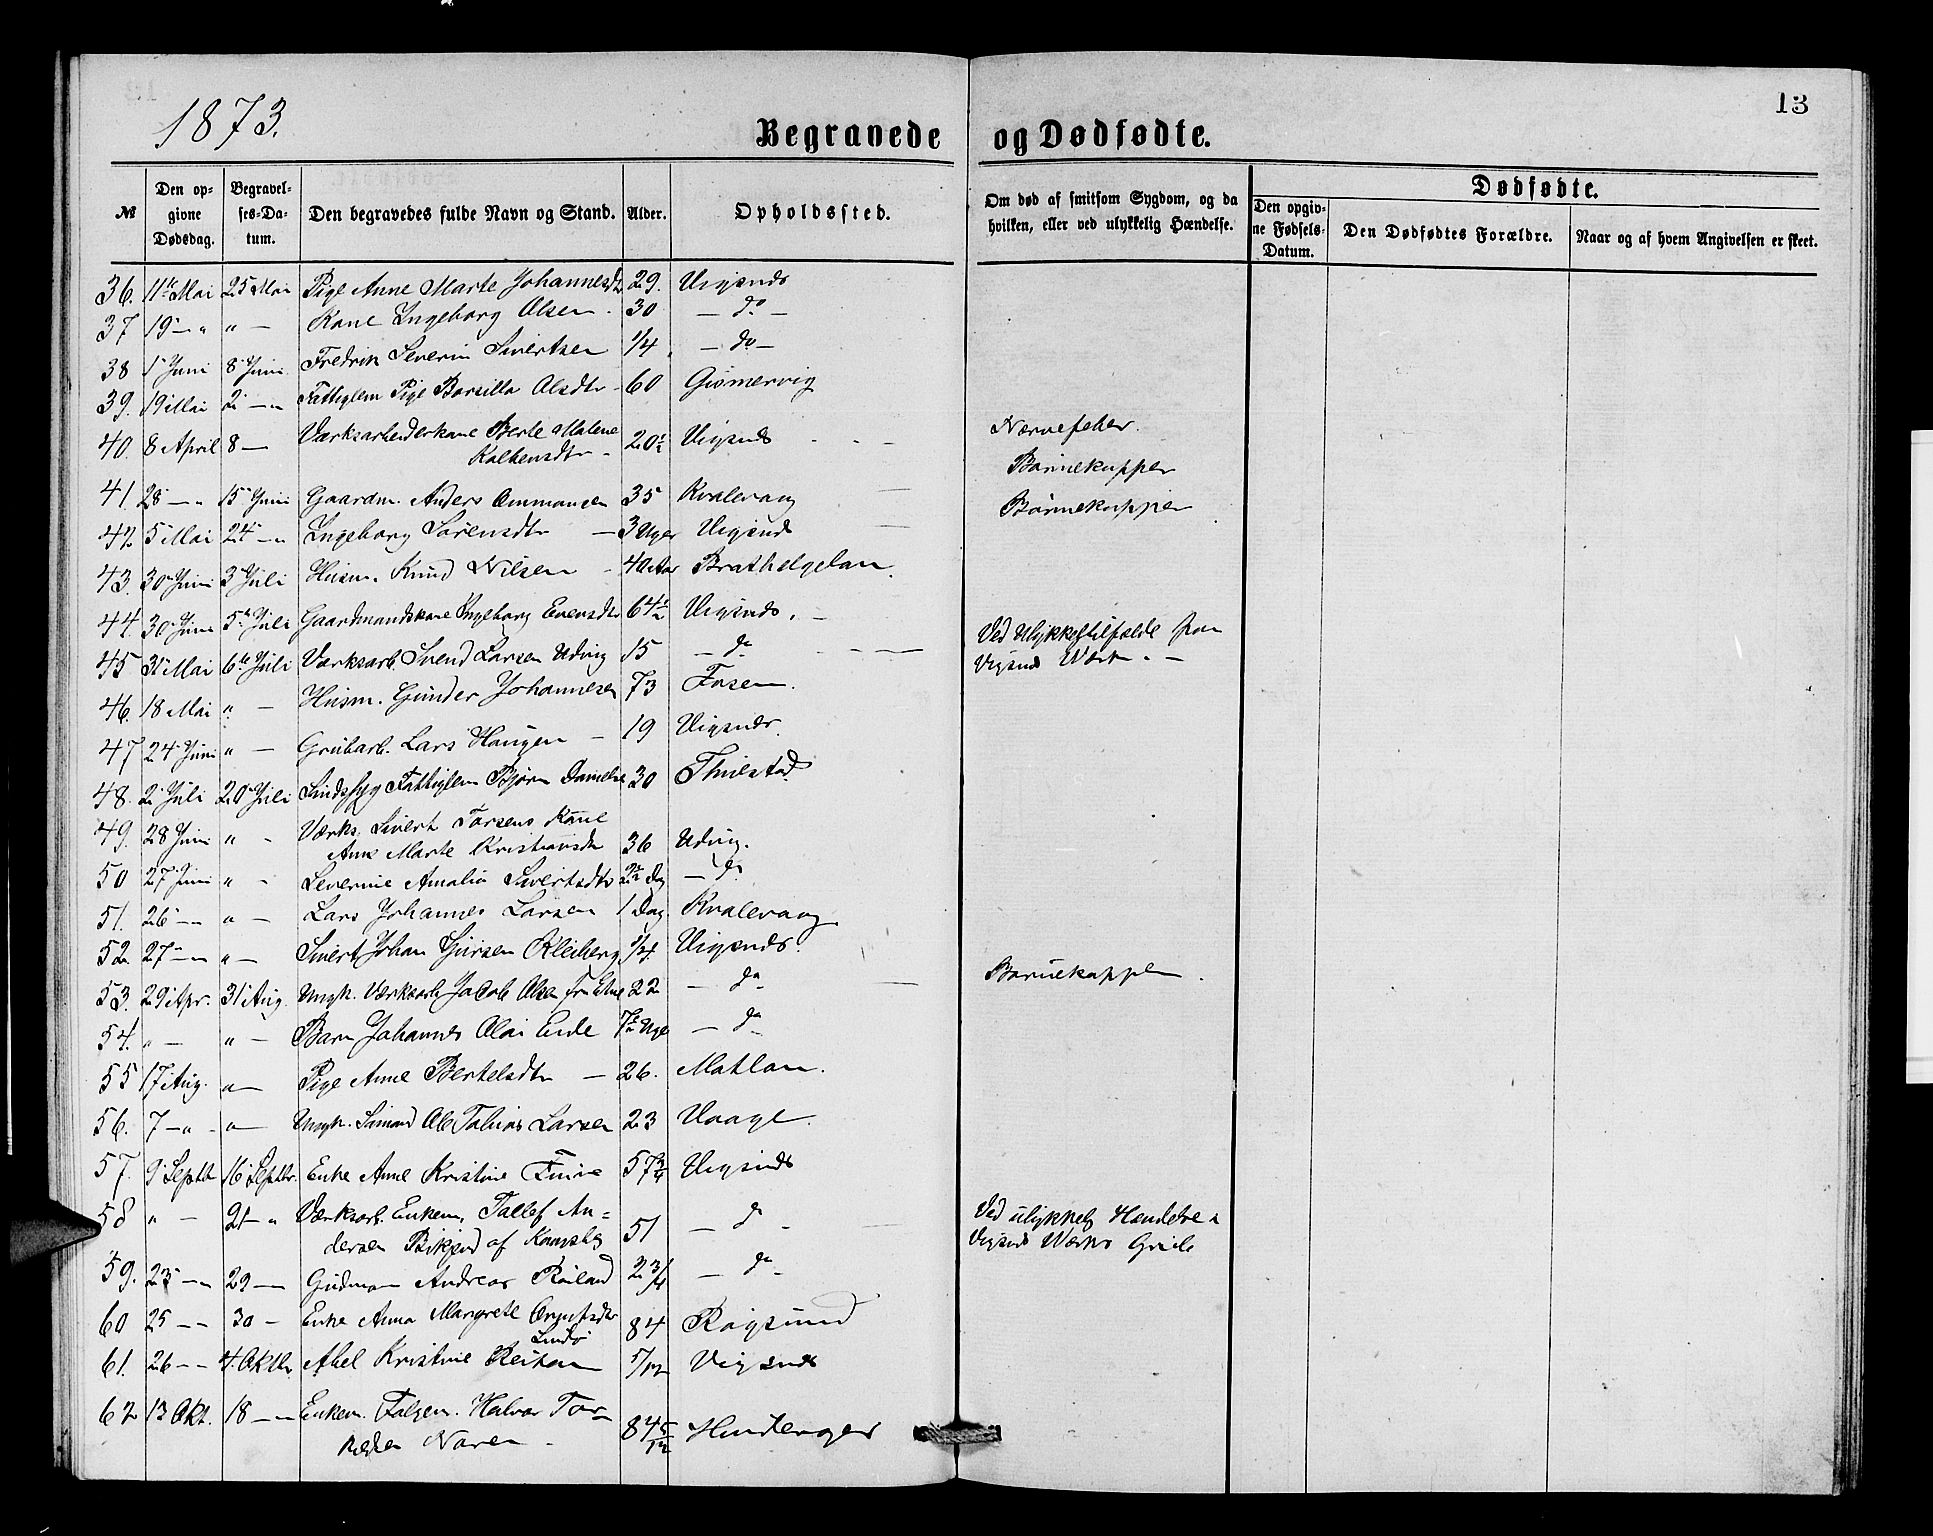 1873.
13
Begravede og Dødfødte.
№
Den opgivne Dødsdag.
Begravelses-Datum.
Den begravedes fulde Navn og Stand.
Alder.
Opholdssted.
Om død af smitsom Sygdom, og da hvilken, eller ved ulykkelig Hændelse.
Dødfødte.
Den opgivne Fødsels-Datum.
Den Dødfødtes Forældre.
Naar og af hvem Angivelsen er skeet.
36. 11te Mai 25 Mai Pige Anne Marte Johannesdtr 29. Vigsnes
37 19 — " " — Kone Ingeborg Olsen. 30 — do —
38 1 Juni 8 Juni Fredrik Severin Sivertsen 1/4 — do —
39. 19 Mai 2 — " Fattiglem Pige Borsilla Olsdtr 60 Gismervig
40. 8 April 8 — Værksarbeiderkone Berte Malene 20½ Vigsnes Nervefeber.
41. 28 — " 15 Juni Gaardm. Anders Ommonsen 35 Kvalevaag Børnekopper
42 5 Mai 24 — " Ingeborg Sørensdtr — 3 Uger Vigsnes Børnekopper
43. 30 Juni 3 Juli Husm. Knud Nilsen — 40 Aar Brathelgelan
44. 30 Juni 5te Juli Gaardmandskone Ingeborg Evensdtr 64½ Vigsnes. —
45 31 Mai 6te Juli Værksarb. Svend Larsen Udvig 15 — do Ved Ulykkestilfælde paa
Vigsnes Værk. —
46. 18 Mai " — Husm. Gunder Johannesen 73 Fosen.
47 24 Juni " — Grubarb. Lars Haugen — 19 Vigsnes.
48. 2 Juli 20 Juli Sindssyg Fattiglem Bjørn Danielse 30
49. 28 Juni " - Værks. Sivert Torsens Kone
Anne Marte Kristiansdtr 36 Udvig.
50 27 Juni " - Severine Amalia Sivertsdtr 2½ Dag — do
51. 26 — " " — Lars Johannes Larsen 1 Dag. Kvalevaag
52. 27 — " " — Sivert Johan Kleiberg 1/4 Vigsnes.
53. 29 Apr. 31 Aug. Ungk. Værksarb. Jacob Olsen fra Etne 22 — do Børnekopper.
54. " — " — Barn Johannes Olai Eide — do
55 17 Aug. " — Pige Anne Bertelsdtr — 26. Matlan.
56. 7 — " - " — Ungk. Simond Ole Tobias Larsen 23 Vaage.
57. 9 Septbr 16 Septbr. Enke Anne Kristine 57¾ Vigsnes
58 " — 21 — " Værksarb. Enkem. Tallef An=
dersen af 51 — do - Ved ulykkelig Hændelse i
Vigsnes Værks Grube
59. 23 — " 29 — Gudmon Andreas Røiland 2¾ — do -
60 25 — - 30 - Enke Anna Margrete 84 Røgsund
61. 26 — - 4. Oktbr Abel Kristine 5/12 Vigsnes
62 13 Okt. 18 — " Enkem. Halvor Tor= 84 5/12